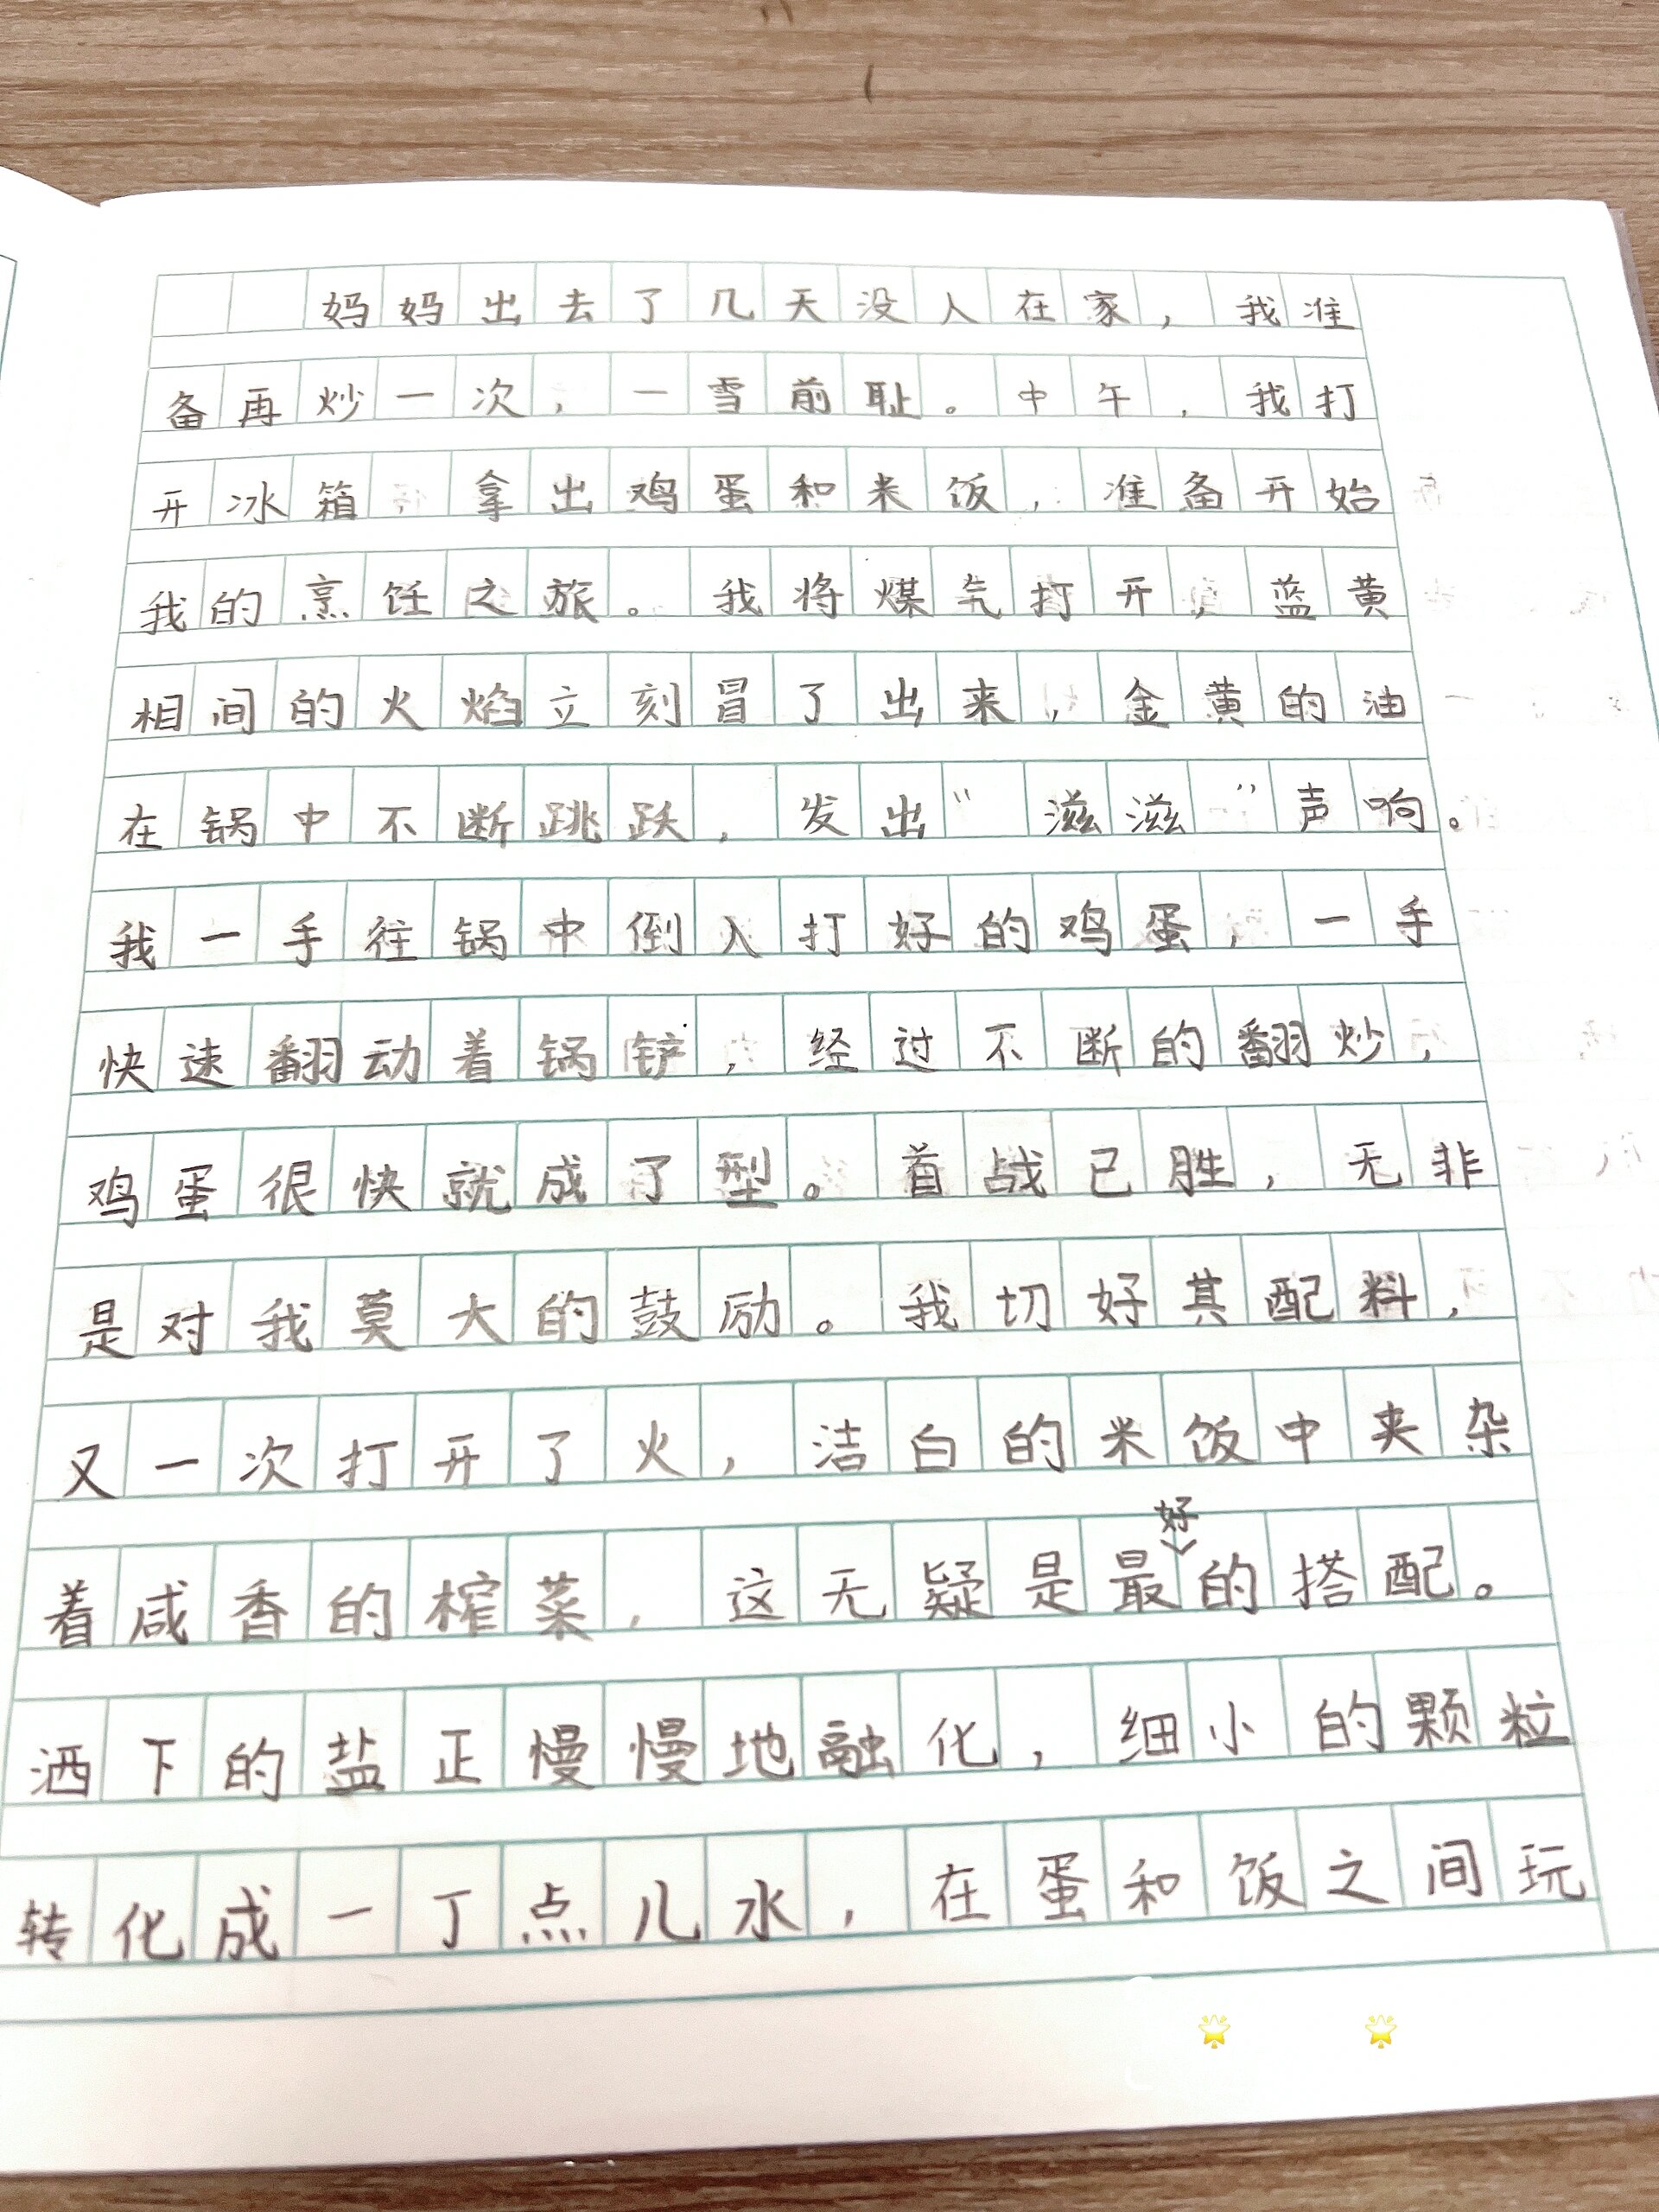 妈妈出去了几天没人在家，我准
备再炒一次，一雪前耻。中午，我打
开冰箱 拿出鸡蛋和米饭，准备开始
我的烹饪之旅。我将煤气打开，蓝黄
相间的火焰立刻冒了出来，金黄的油
在锅中不断跳跃，发出“滋滋”声响。
我一手往锅中倒入打好的鸡蛋，一手
快速翻动着锅铲，经过不断的翻炒，
鸡蛋很快就成了型。首战已胜，无非
是对我莫大的鼓励。我切好其配料，
又一次打开了火，洁白的米饭中夹杂
着咸香的榨菜，这无疑是最好的搭配。
洒下的盐正慢慢地融化，细小的颗粒
转化成一丁点儿水，在蛋和饭之间玩